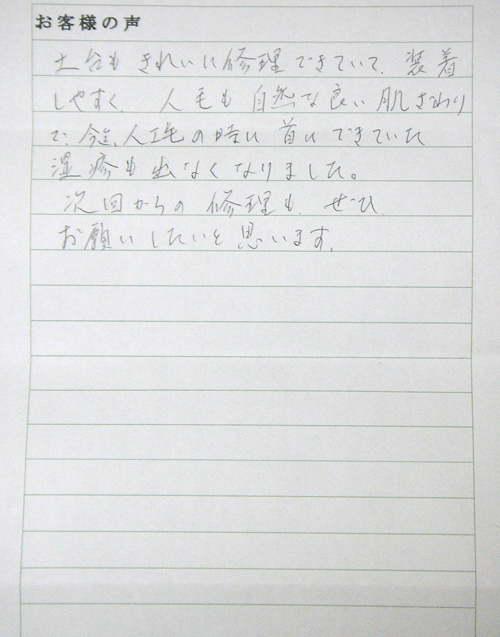 お客様の声
土台もきれいに修理できていて、装着
しやすく 人毛も自然な良い肌ざわり
で、今迄、人工毛の時に首にできていた
湿疹も出なくなりました。
次回からの修理も、ぜひ
お願いしたいと思います。